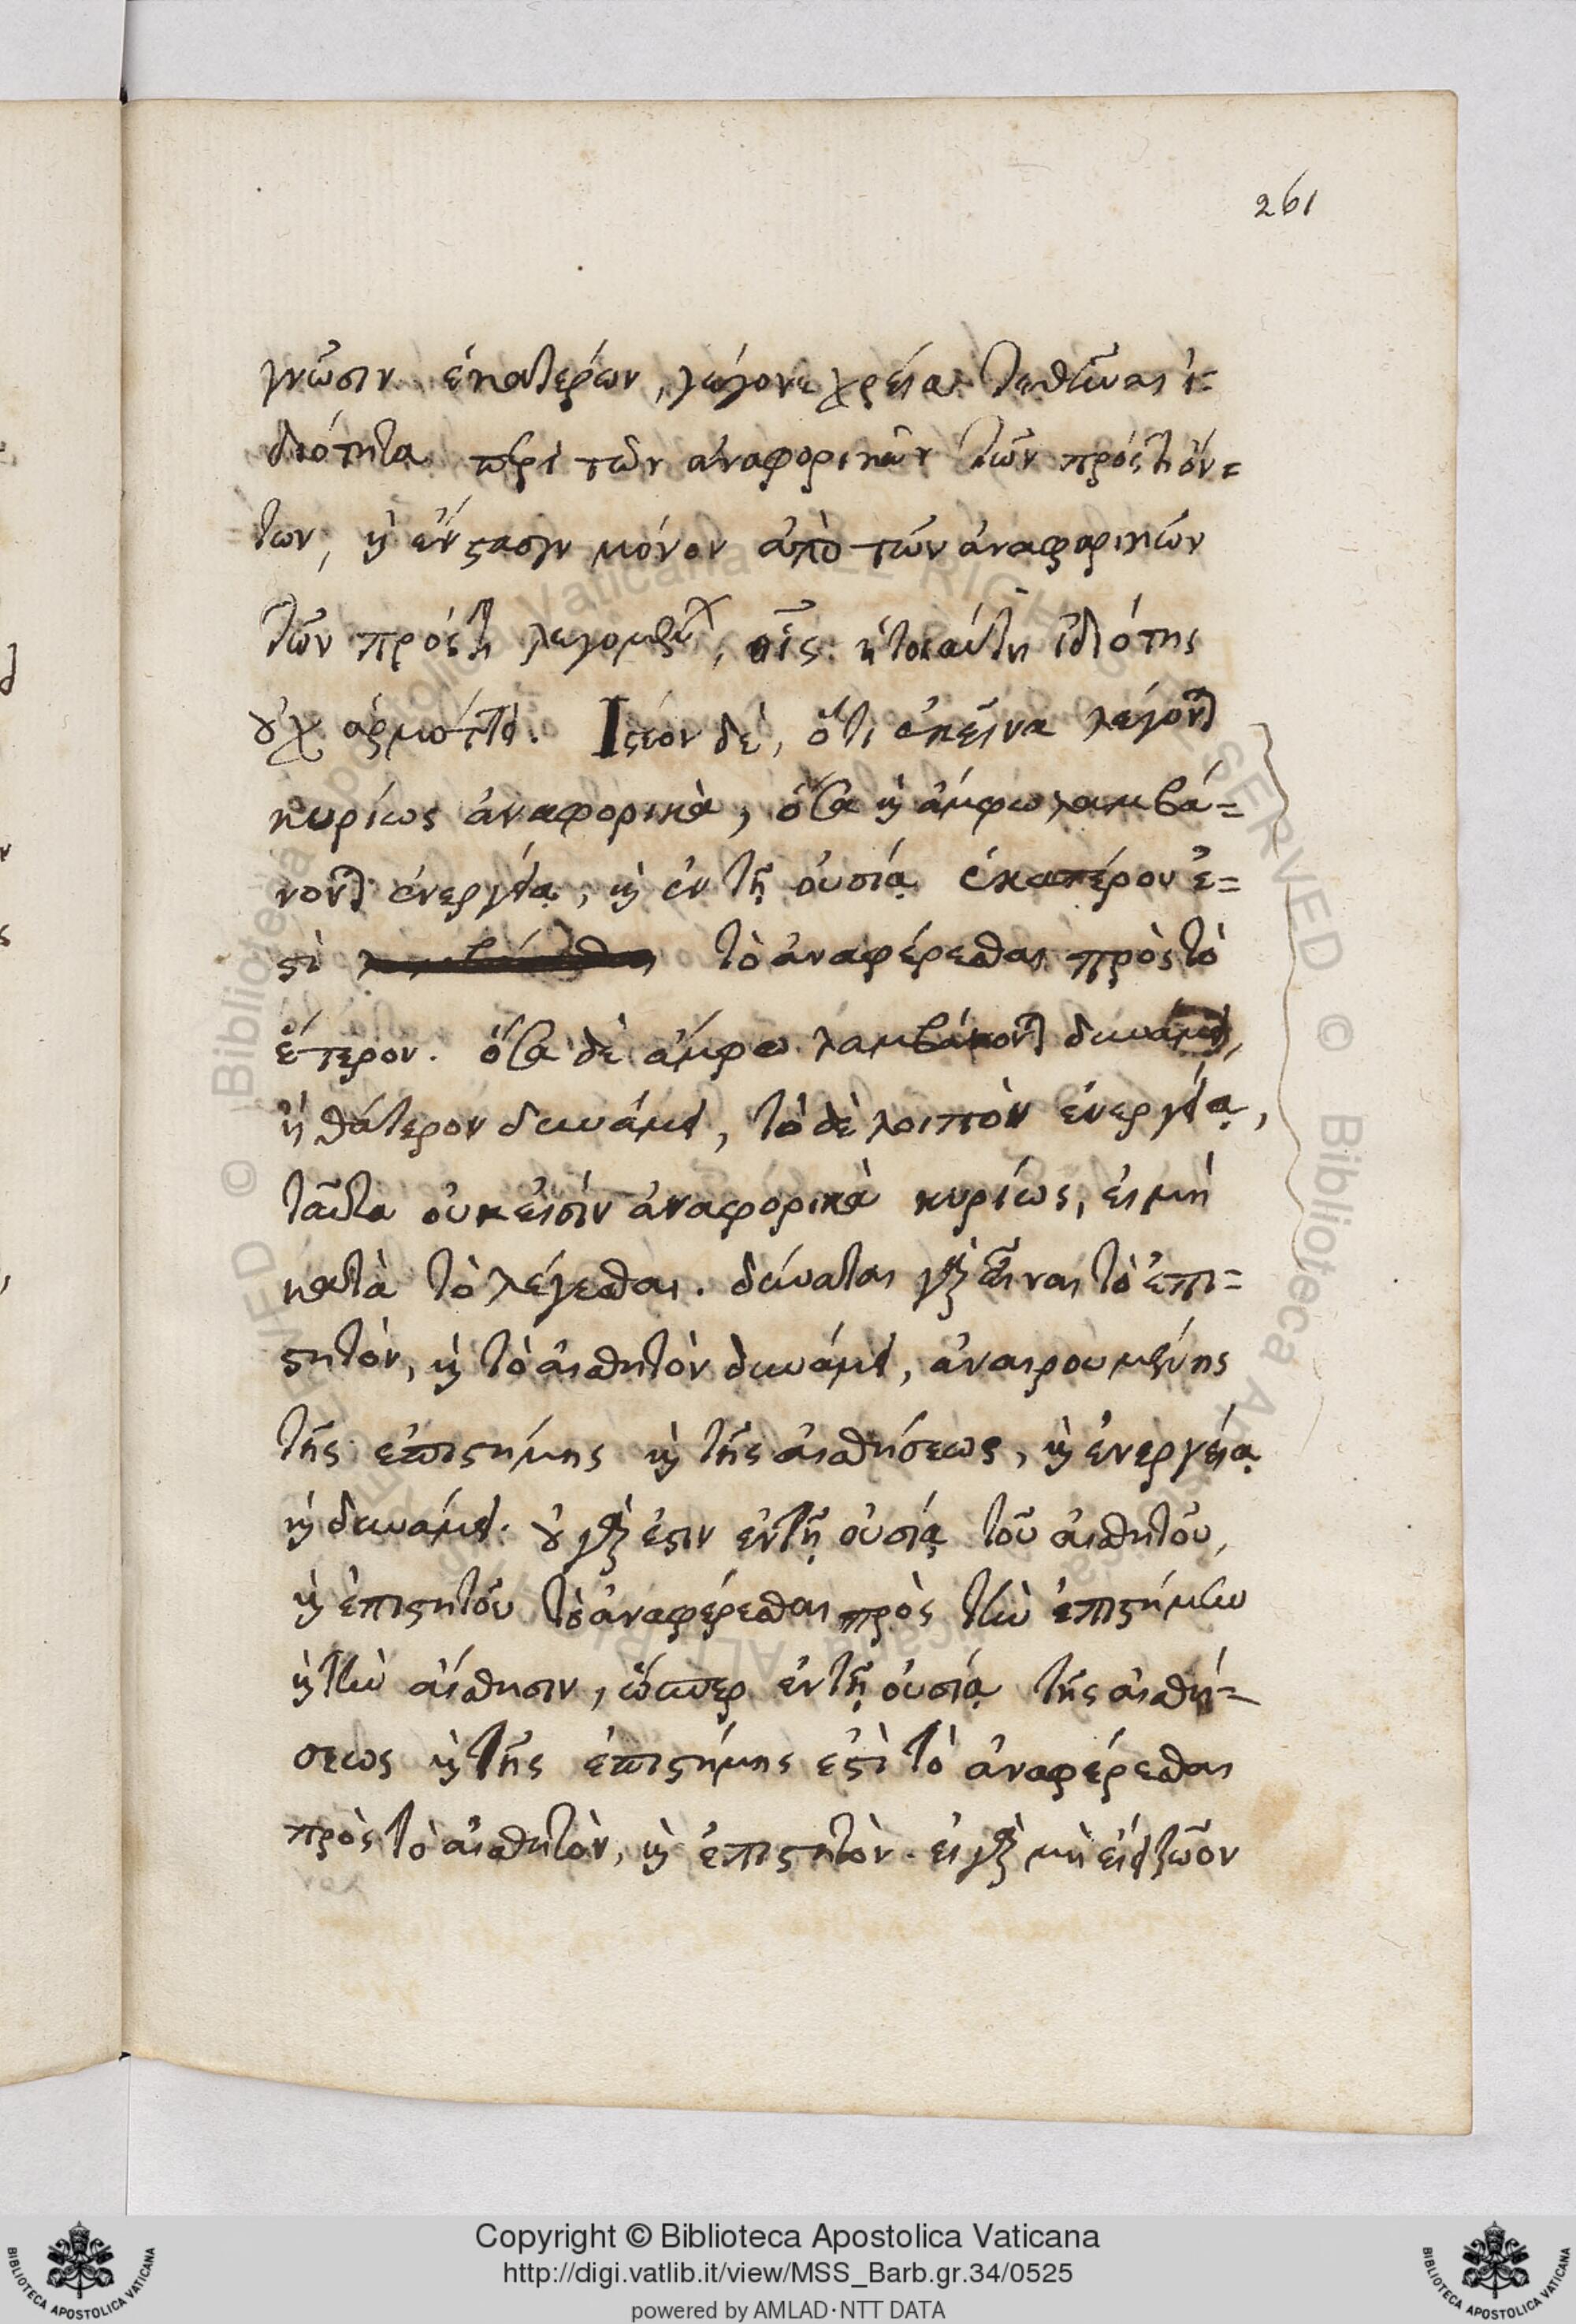 261
γνῶσιν ἑκατέρων, γέγονε χρεία τεθῆναι ἰ=
διότητα περὶ τῶν ἀναφορικῶν τῶν πρός τι ὄν=
των, ἢ ἔνστασιν μόνον ἀπὸ τῶν ἀναφορικῶν
τῶν πρός τι λεγομένων, οἷς ἡ τοιαύτη ἰδιότης
οὐχ ἁρμόττει. Ἰστέον δὲ, ὅτι ἐκεῖνα λέγονται
κυρίως ἀναφορικὰ, ὅσα καὶ ἄμφω λαμβά=
νονται ἐνεργείᾳ, καὶ ἐν τῇ οὐσίᾳ ἑκατέρου ἐ=
στὶ τὸ ἀναφέρεσθαι πρὸς τὸ
ἕτερον. ὅσα δὲ ἄμφω λαμβάνονται δυνάμει,
ἢ θάτερον δυνάμει, τὸ δὲ λοιπὸν ἐνεργείᾳ,
ταῦτα οὐκ εἰσὶν ἀναφορικὰ κυρίως, εἰ μὴ
κατὰ τὸ λέγεσθαι. δύναται γὰρ εἶναι τὸ ἐπι=
στητὸν, καὶ τὸ αἰσθητὸν δυνάμει, ἀναιρουμένης
τῆς ἐπιστήμης καὶ τῆς αἰσθήσεως, καὶ ἐνεργείᾳ
καὶ δυνάμει. οὐ γάρ ἐστιν ἐν τῇ οὐσίᾳ τοῦ αἰσθητοῦ,
καὶ ἐπιστητοῦ τὸ ἀναφέρεσθαι πρὸς τὴν ἐπιστήμην
καὶ τὴν αἴσθησιν, ὥσπερ ἐν τῇ οὐσίᾳ τῆς αἰσθή=
σεως καὶ τῆς ἐπιστήμης ἐστὶ τὸ ἀναφέρεσθαι
πρὸς τὸ αἰσθητὸν, καὶ ἐπιστητὸν. εἰ γὰρ μὴ εἴη ζῶον
Copyright © Biblioteca Apostolica Vaticana
http://digi.vatlib.it/view/MSS_Barb.gr.34/0525
powered by AMLAD·NTT DATA